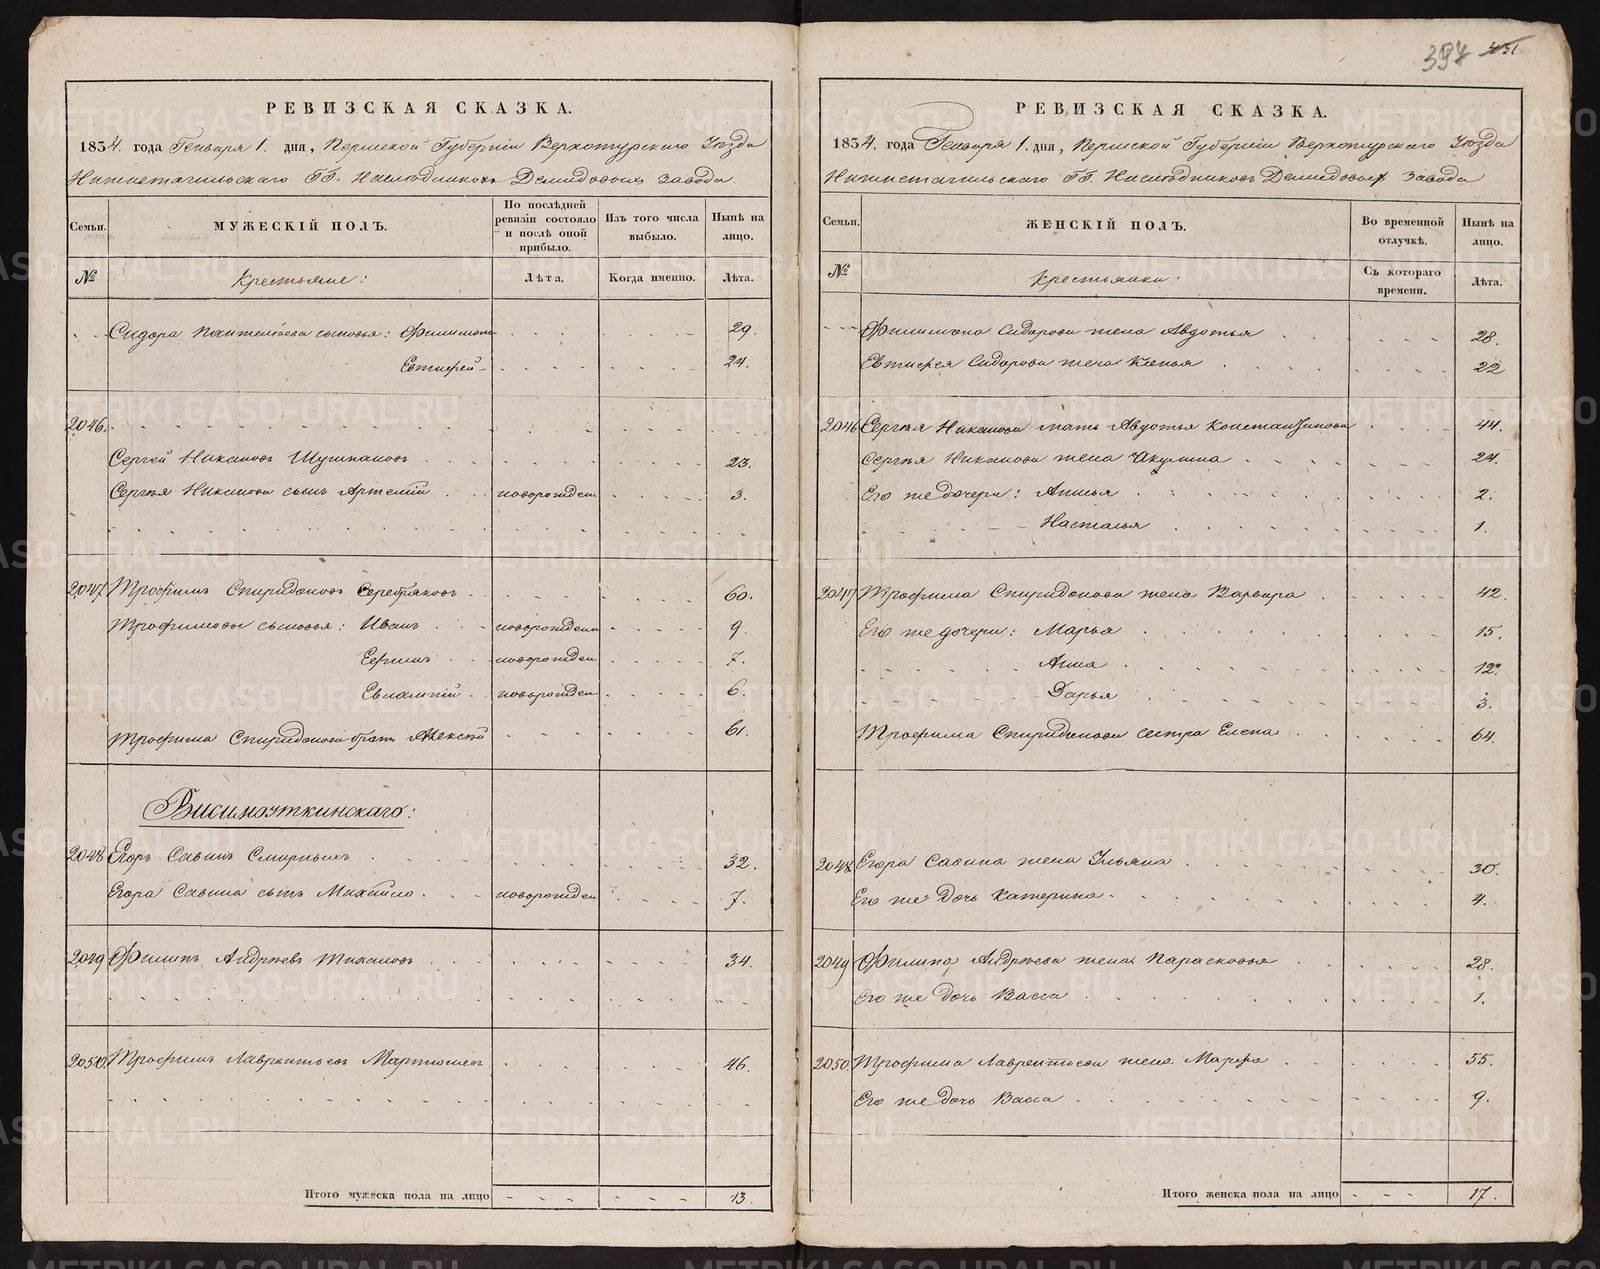 397 451
РЕВИЗСКАЯ СКАЗКА.
1834. года Генваря 1. дня, Пермской Губерніи Верхотурскаго Уѣзда
Нижнетагильскаго ГГ. Наслѣдниковъ Демидовыхъ завода
Семьи.
МУЖЕСКІЙ ПОЛЪ.
По послѣдней ревизіи состояло и послѣ оной прибыло.
Изъ того числа выбыло.
Нынѣ на лицо.
№
Крестьяне:
Лѣта.
Когда именно.
Лѣта.
Сидора Пантелѣева сыновья: Филимонъ 29.
Евтифей 24.
2046.
Сергей Никановъ 23.
СергѣяНиканова сынъ Артемій новорожден 3.
2047 Трофимъ Спиридоновъ Серебряковъ 60.
Трофимовы сыновья: Иванъ новорожденн 9.
Ефимъ новорожден 7.
Евлампій новорожден 6.
Трофима Спиридонова братъ Алексѣй 61.
Висимоуткинскаго:
2048 Егоръ Савинъ Смирныхъ 32.
Егора Савина сынъ Михайло новорожден 7.
2049 Филипъ Андрѣевъ Тихановъ 34.
2050. Трофимъ Лаврентьевъ Мартюшевъ 46.
Итого мужеска пола на лицо 13.
РЕВИЗСКАЯ СКАЗКА.
1834. года Генваря 1. дня, Пермской Губерніи Верхотурскаго Уѣзда
Нижнетагильскаго ГГ. Наслѣдниковъ Демидовыхъ завода
Семьи.
ЖЕНСКІЙ ПОЛЪ.
Во временной отлучкѣ.
Нынѣ на лицо.
№
Крестьянки:
Съ котораго времени.
Лѣта.
Филимона Сидорова жена Авдотья 28.
Евтифея Сидорова жена Ксенья 22
2046 Сергѣя Никанова мать Авдотья Константинова 44.
Сергѣя Никанова жена Акулина 24.
Его же дочери: Анисья 2.
Настасья 1.
2047 Трофима Спиридонова жена Варвара 42.
Его же дочери: Марья 15.
Анна 12.
Дарья 3.
Трофима Спиридонова сестра Елена 64.
2048 Егора Савина жена Ульяна 30.
Его же дочь Катерина 4.
2049 Филипа Андрѣева жена Парасковья 28.
Его же дочь Васса 1.
2050. Трофима Лаврентьева жена Марфа 55.
Его же дочь Васса 9.
Итого женска пола на лицо 17.
METRIKI.GASO-URAL.RU